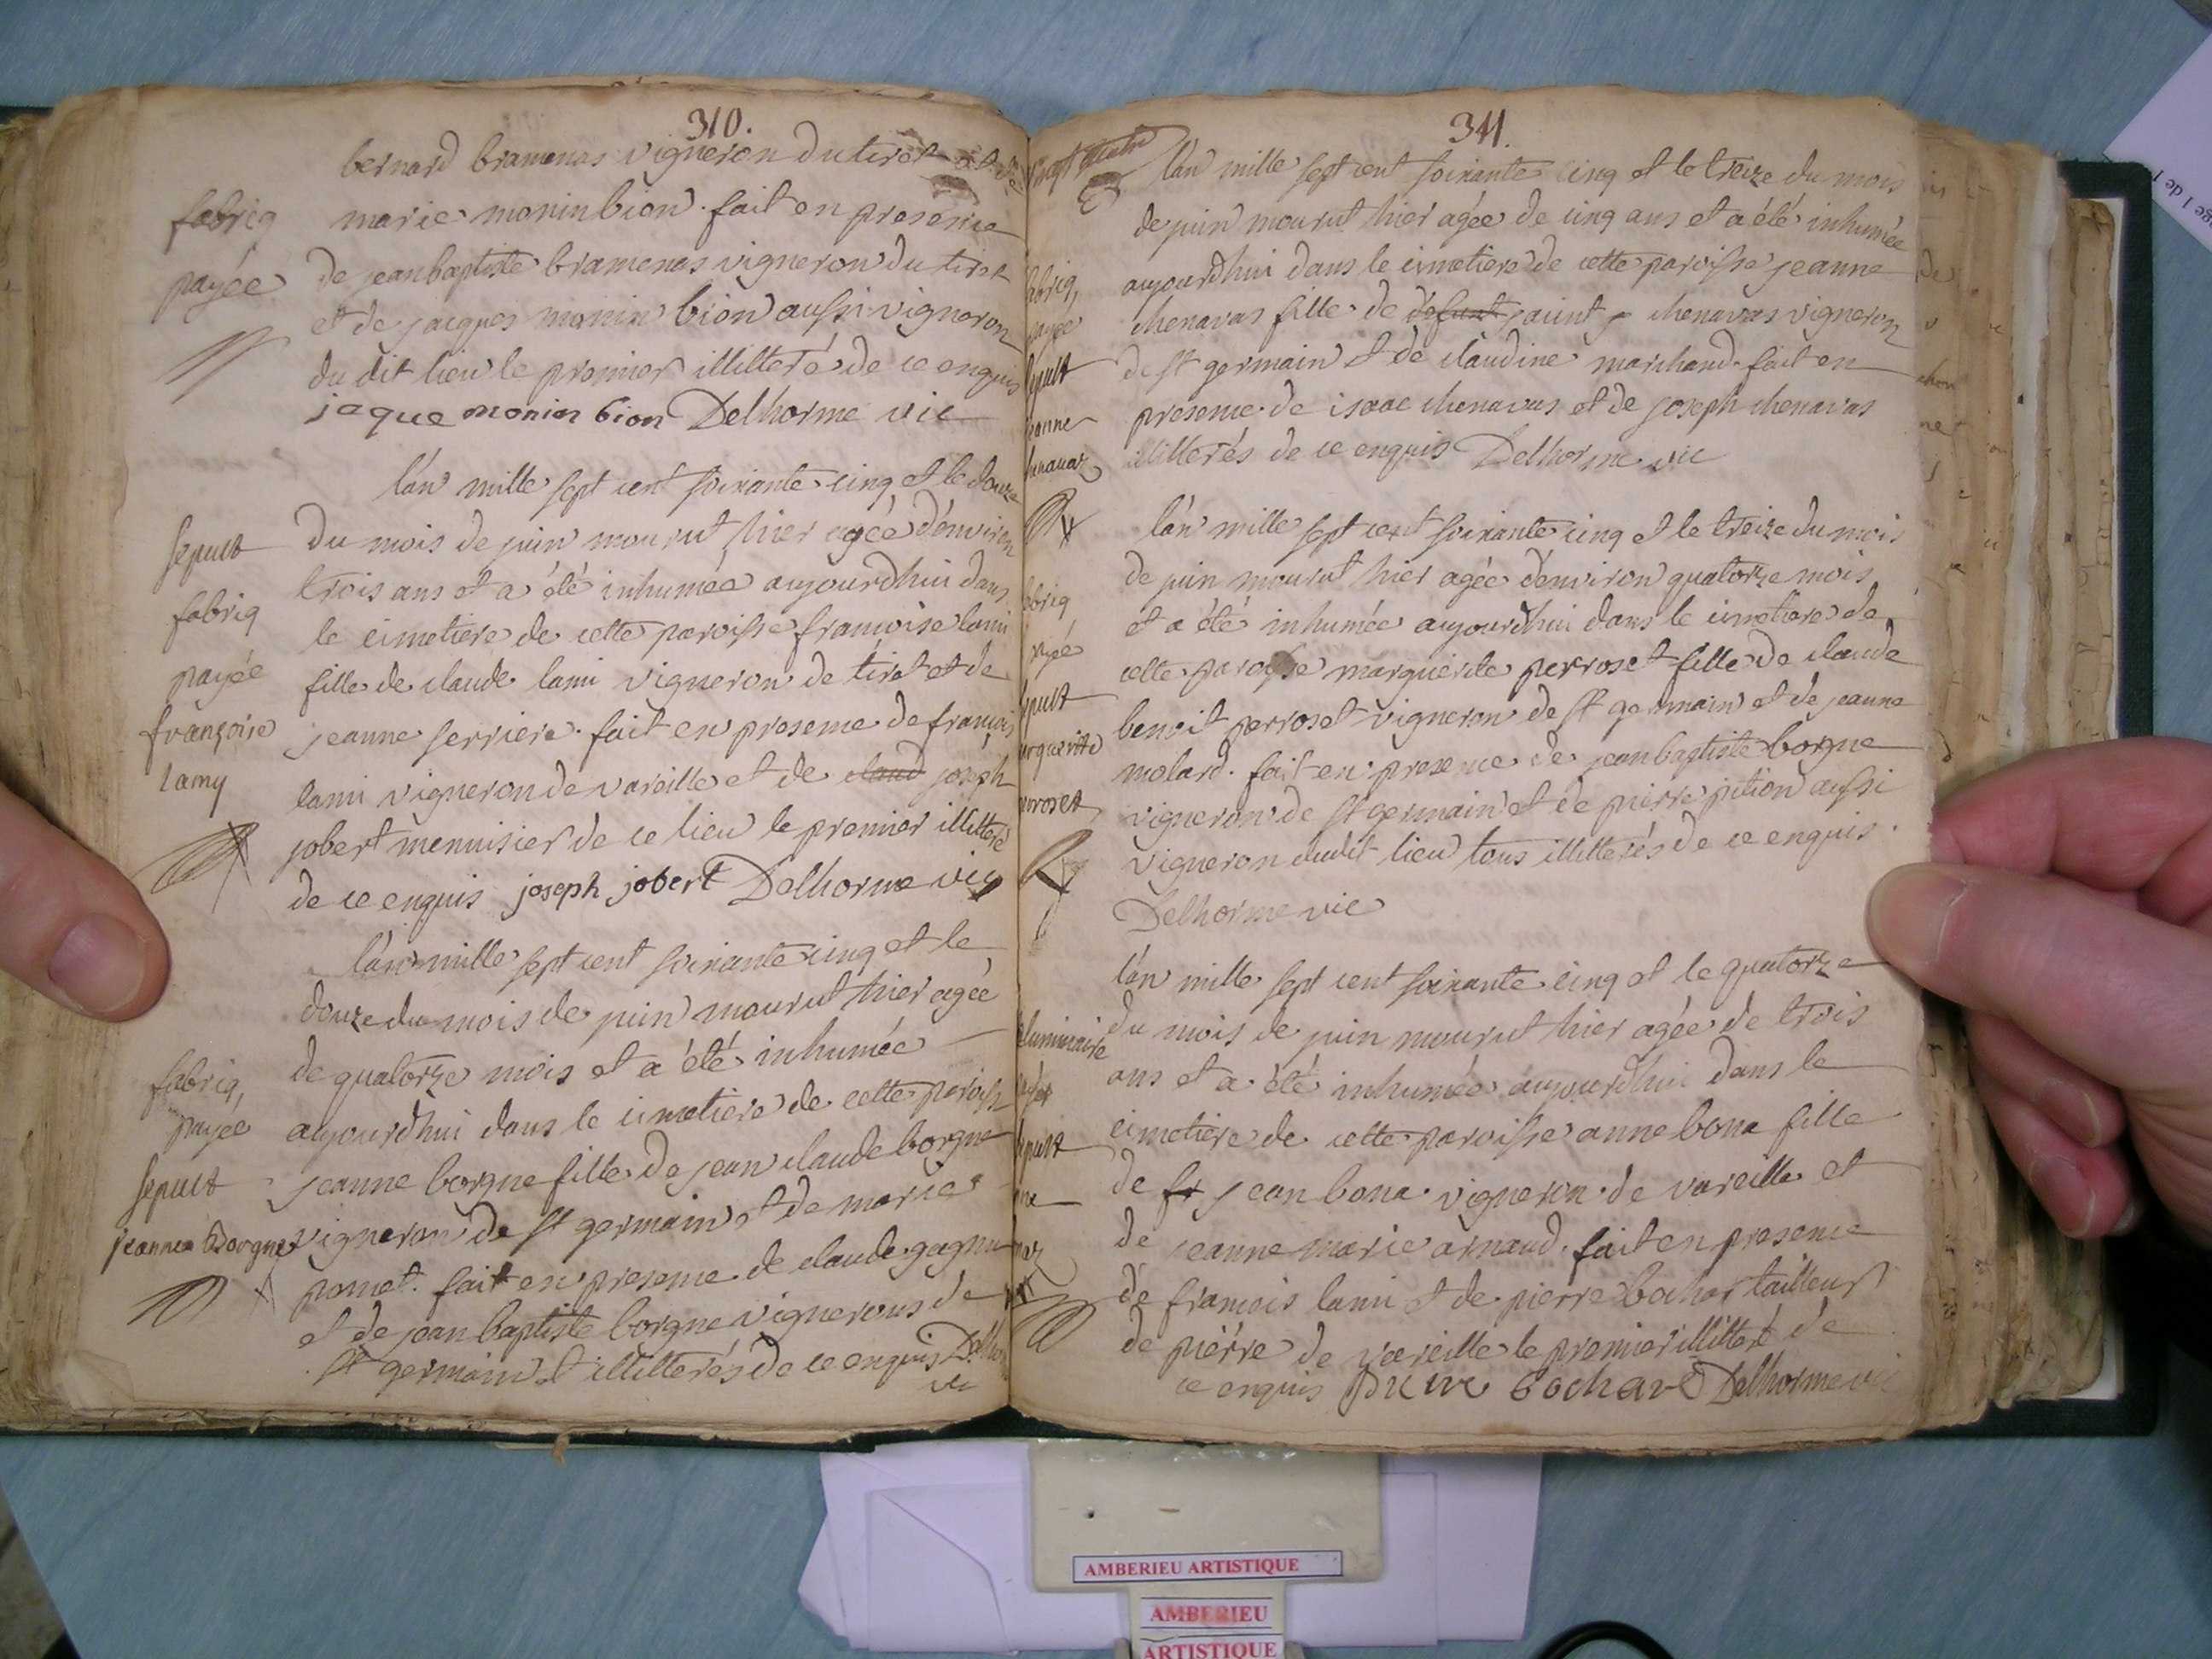 310.
bernard bramenas vigneron du tiret et de
marie monin bion. fait en presence
de jean baptiste bramenas vigneron du tiret
et de jacques monin bion aussi vigneron
du dit lieu le premier illitteré de ce enquis
jaque monin bion Delhorme vic
fabriq
payée
l'an mille sept cent soixante cinq et le douze
du mois de juin mourut hier agée d'environ
trois ans et a été inhumée aujourdhui dans
le cimetiere de cette paroisse francoise lami
fille de claude lami vigneron de tiret et de
jeanne serriere. fait en presence de francois
lami vigneron de vareille et de claud joseph
jobert menuisier de ce lieu le premier illitteré
de ce enquis joseph jobert Delhorme vic
sepult
fabriq
payée
françoise
lamy
l'an mille sept cent soixante cinq et le
douze du mois de juin mourut hier agée
de quatorze mois et a été inhumée
aujourdhui dans le cimetiere de cette paroisse
jeanne borgne fille de jean claude borgne
vigneron de st germain et de marie
pomet. fait en presence de claude gagne
et de jean baptiste borgne vignerons de
st germain et illitterés de ce enquis Delhor
vic
fabriq,
payée
sepult
jeanne Borgne
311.
l'an mille sept cent soixante cinq et le treize du mois
de juin mourut hier agée de cinq ans et a été inhumée
aujourdhui dans le cimetiere de cette paroisse jeanne
chenavas fille de defunt chenavas vigneron
de st germain et de claudine marchand. fait en
presence de isaac chenavas et de joseph chenavas
illitterés de ce enquis Delhorme vic
abriq,
payée
sepult
jeanne
henavaz
l'an mille sept cent soixante cinq et le treize du mois
de juin mourut hier agée d'environ quatorze mois
et a été inhumée aujourdhui dans le cimetiere de
cette paroisse marguerite perroset fille de claude
benoit perroset vigneron de st germain et de jeanne
molard. fait en presence de jean baptiste borgne
vigneron de st germain et de pierre pition aussi
vigneron dudit lieu tous illitterés de ce enquis.
Delhorme vic
abriq
payée
sepult
arguerite
perroset
l'an mille sept cent soixante cinq et le quatorze
du mois de juin mourut hier agée de trois
ans et a été inhumée aujourdhui dans le
cimetiere de cette paroisse anne bona fille
de fr jean bona vigneron de vareille et
de jeanne marie arnaud. fait en presence
de francois lami et de pierre bochar tailleur
de pierre de vareille le premier illitteré de
ce enquis pierre bochard Delhorme vic
luminaire
sepult